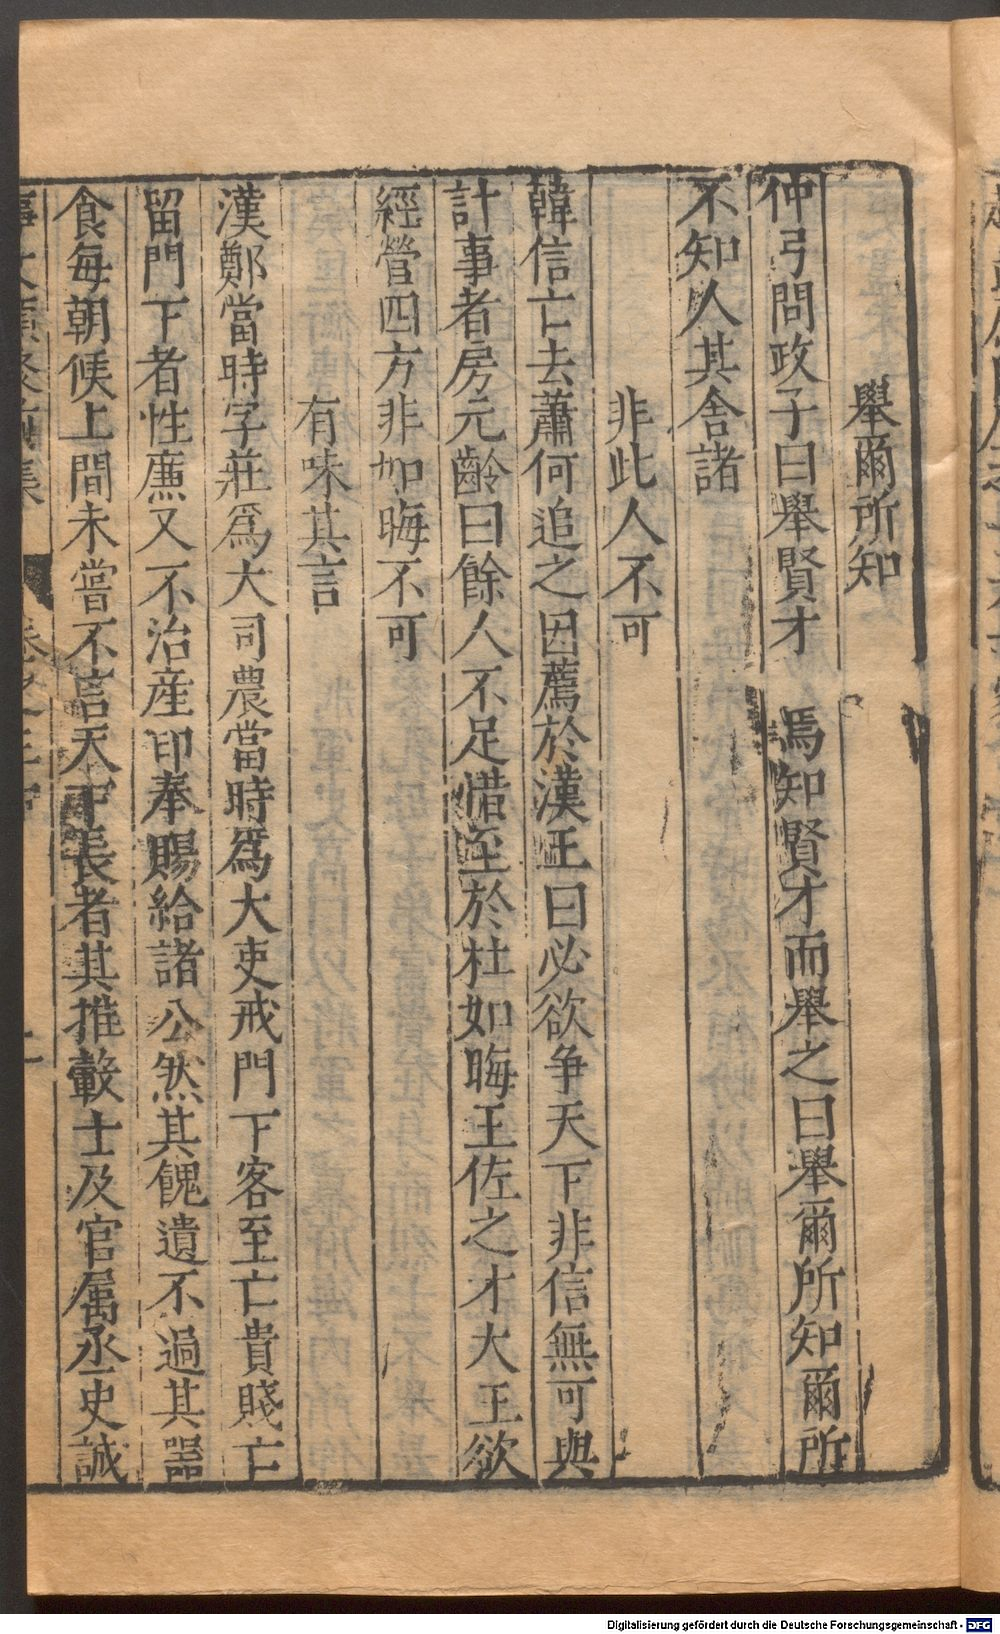 舉爾所知
仲弓問政子曰舉賢才　焉知賢才而舉之曰舉爾所知爾所
不知人其舍諸
非此人不可
韓信亡去蕭何追之因薦於漢王曰必欲争天下非信無可與
計事者房元齡曰餘人不足惜至於杜如晦王佐之才大王欲
經營四方非如晦不可
有味其言
漢鄭當時字莊爲大司農當時爲大吏戒門下客至亡貴賤亡
留門下者性廉又不治産卬奉賜給諸公然其餽遺不過其噐
食每朝候上間未嘗不言天下長者其推轂士及官属丞史誠
Digitalisierung gefördert durch die Deutsche Forschungsgemeinschaft - DFG